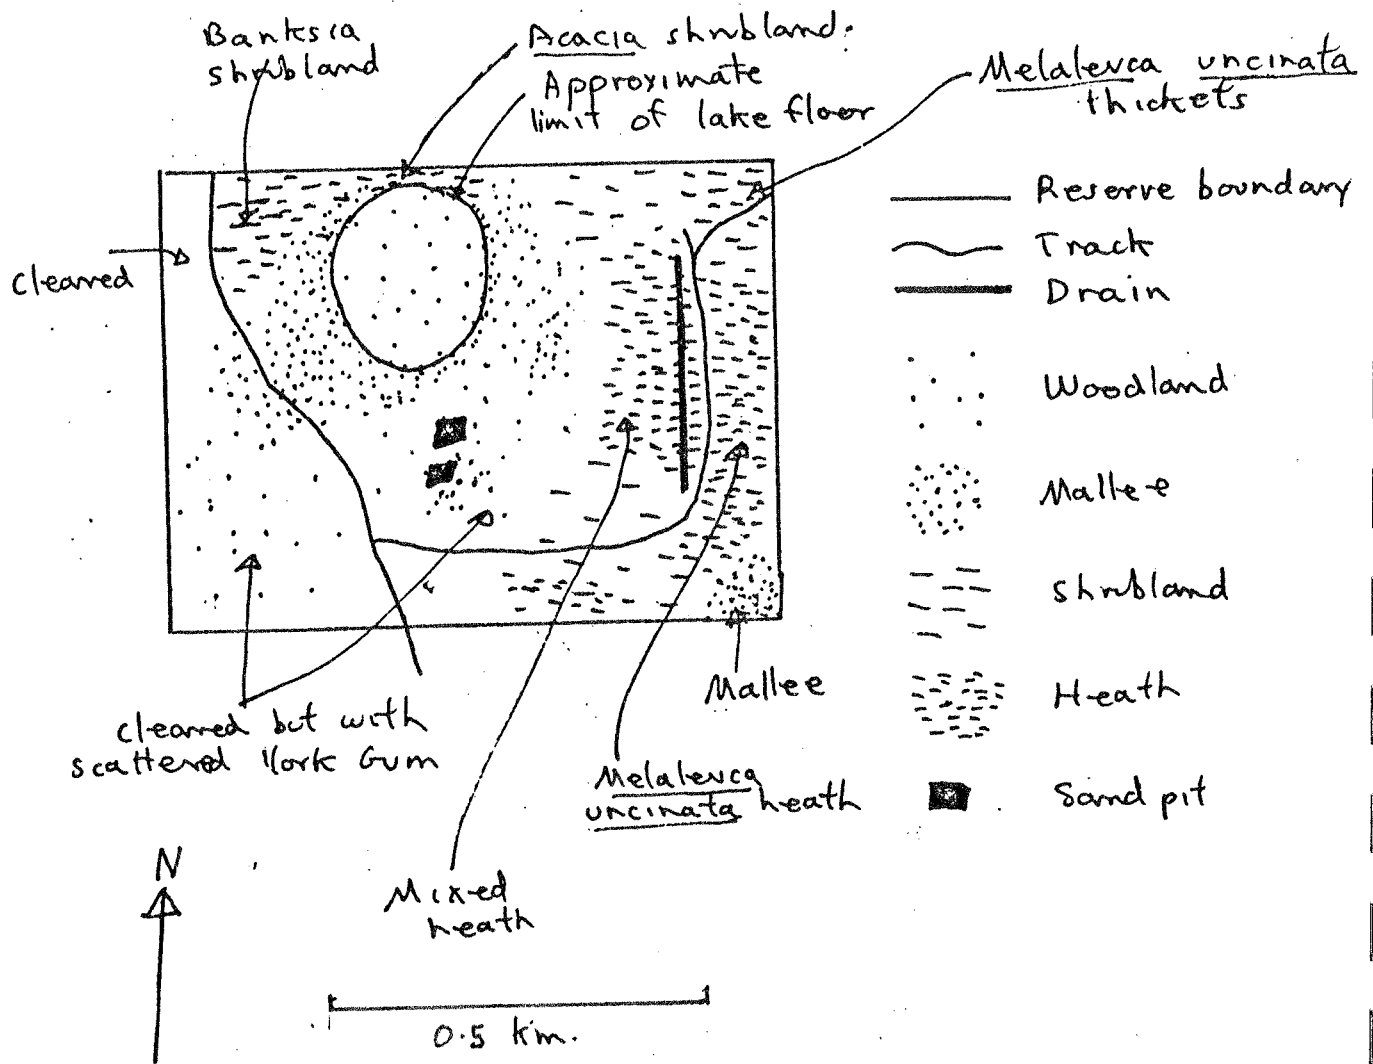 Banksia
shrubland
Acacia shrubland.
Approximate
limit of lake floor
Melaleuca uncinata
thickets
Cleared
Reserve boundary
Track
Drain
Woodland
Mallee
Shrubland
Heath
Sand pit
Mallee
cleared but with
scattered York Gum
Melaleuca
uncinata heath
Mixed
heath
N
0.5 km.